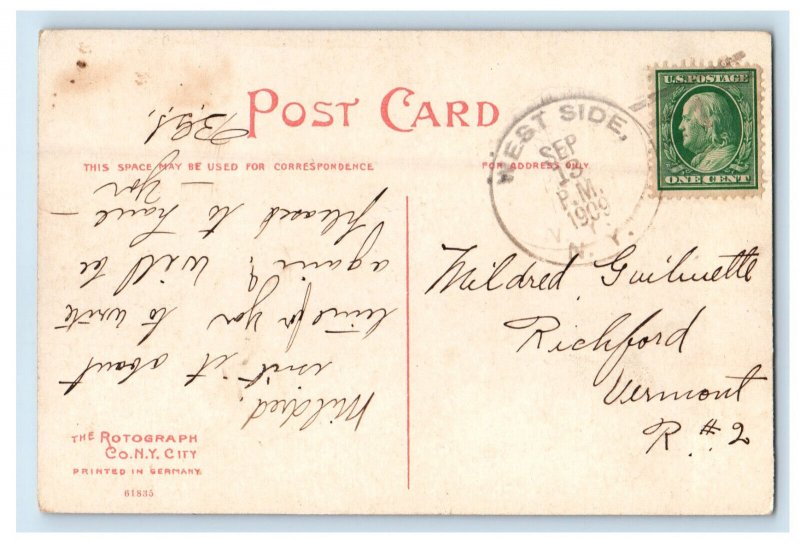 POST CARD
THIS SPACE MAY BE USED FOR CORRESPONDENCE
FOR ADDRESS ONLY
WEST SIDE,
SEP
13
P.M.
1909
N.Y.
U.S. POSTAGE
ONE CENT
Mildred
Richford
Vermont
R #2
Mildred.
isn't it about
time for you to write
again? Will be
pleased to have
you
THE ROTOGRAPH
CO. N.Y. CITY
PRINTED IN GERMANY.
61835